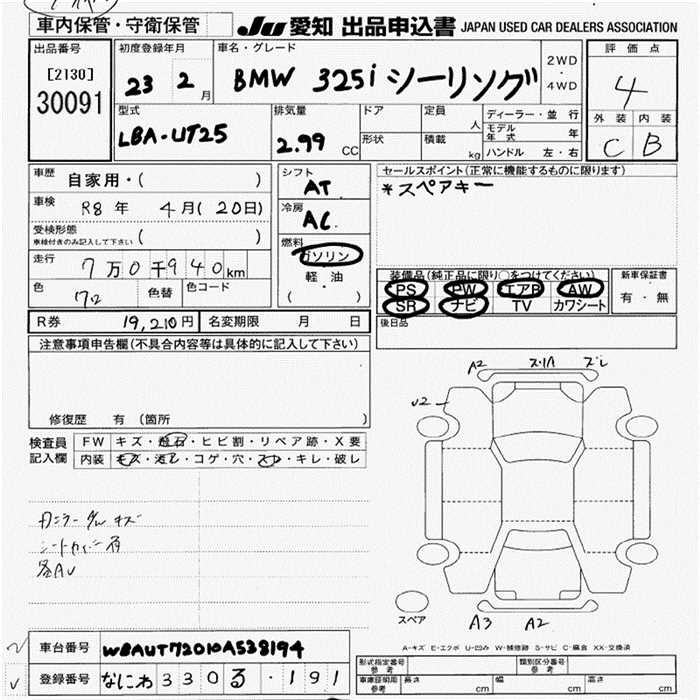 車内保管・守衛保管
JU 愛知 出品申込書 JAPAN USED CAR DEALERS ASSOCIATION
出品番号
[2130]
30091
初度登録年月
23 2 月
車名・グレード
BMW 325i シーリング
2WD
・
4WD
評価点
4
外装 内装
C B
型式
LBA-UT25
排気量
2.99 CC
ドア
形状
定員 人
積載 kg
ディーラー・並行
モデル年式 年
ハンドル 左・右
車歴 自家用・( )
車検 R8年 4月(20日)
受検形態
車検付きのみ記入して下さい ( )
走行 7万0千940km
色 色替 色コード
シフト
AT
冷房
AC
燃料
ガソリン
軽・油
( )
セールスポイント(正常に機能するものに限ります)
*スペアキー
装備品(純正品に限り○をつけてください)
PS PW エアB AW
SR ナビ TV カワシート
新車保証書
有・無
後日品
R券 19,210円 名変期限 月 日
注意事項申告欄(不具合内容等は具体的に記入して下さい)
修復歴 有(箇所 )
検査員
記入欄
FW キズ・飛石・ヒビ割・リペア跡・X要
内装 キズ・汚レ・コゲ・穴・スレ・キレ・破レ
シートカバー有
各AU
A2 ズレ
U2
A3 A2
スペア
A-キズ E-エクボ U-凹み W-補修跡 S-サビ C-腐食 XX-交換済
車台番号 WBAUT72010A538194
登録番号 なにわ330る・191
形式指定番号
参考
類別区分番号
参考
車庫証明用
参考
長さ cm 幅 cm 高さ cm